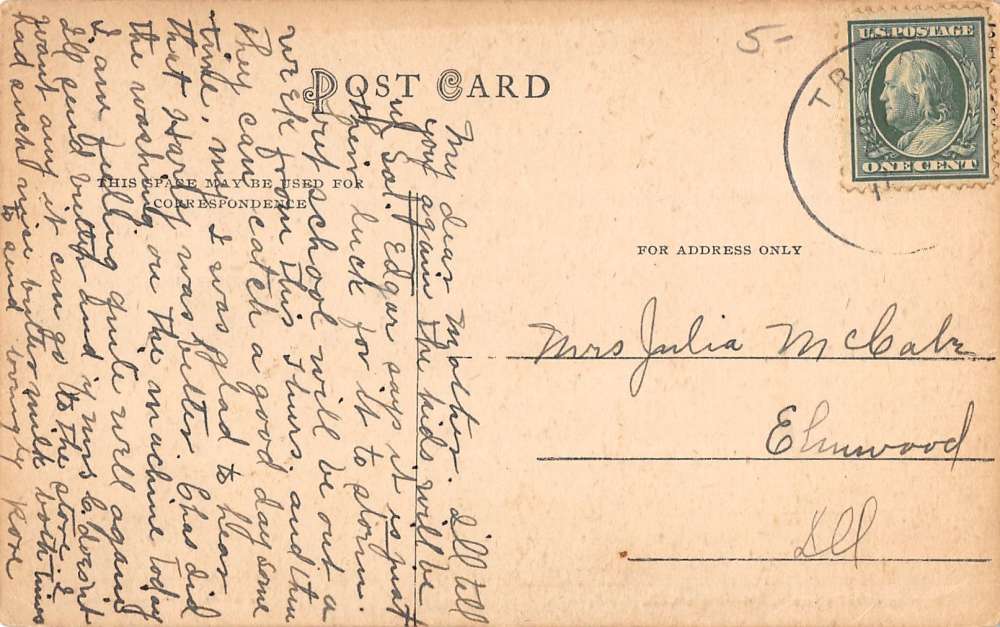 POST CARD
THIS SPACE MAY BE USED FOR
CORRESPONDENCE
FOR ADDRESS ONLY
U.S. POSTAGE
ONE CENT
TR
5-
Mrs Julia McCabe
Elmwood
Ill
My dear Mother. I'll tell
you again the kids will be
up Sat. Edgar says it is just
their luck for it to storm.
but school will be out a
week from this Thurs, and then
they can catch a good day some
time, my I was glad to hear
that Harry was better Chas did
the washing on the machine today
I am feeling quite well again
I'll send butter and if Mrs C. doesn't
want any it can go to the store. I
had such nice butter milk both times
to send lovingly Rose